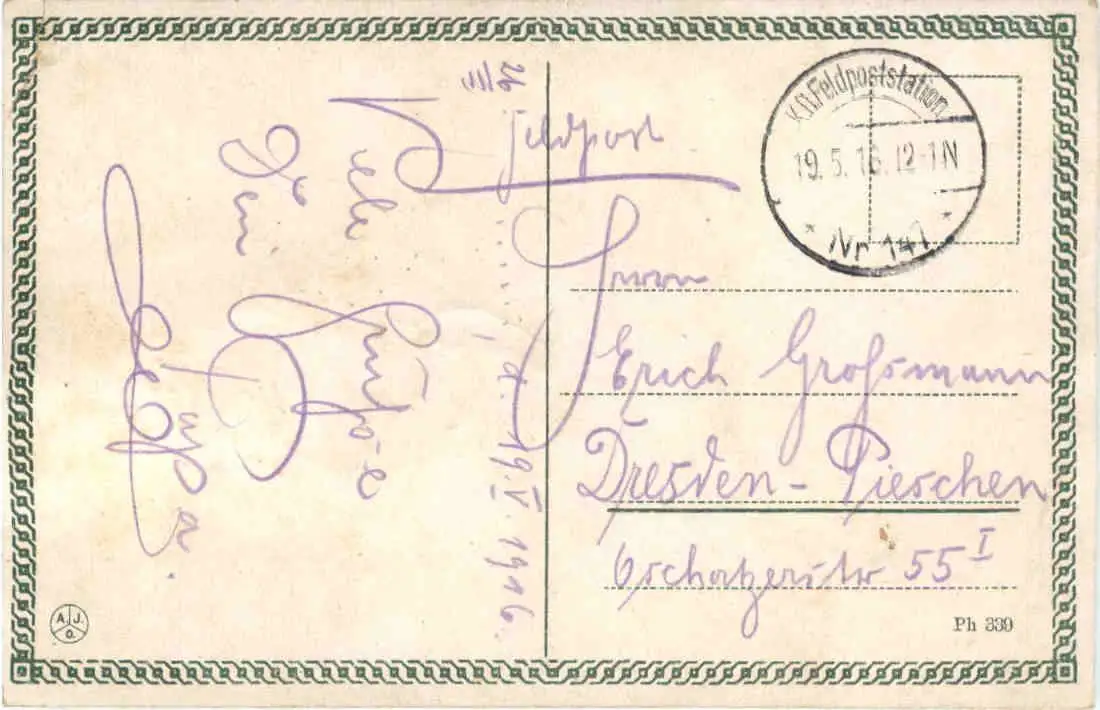 ..........., d. 19.V.1916.
Viele Grüße
Dein
Papa.
Feldpost
K.D.Feldpoststation
19.5.16.12-1N
* Nr 141 *
Herrn
Erich Großmann
Dresden-Pieschen
Oschatzerstr 55 I
A.J.O.
Ph 339